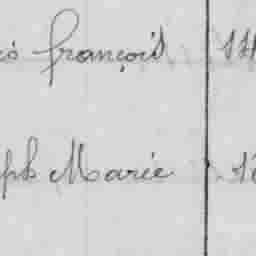 is françois 14
ph Marie 1